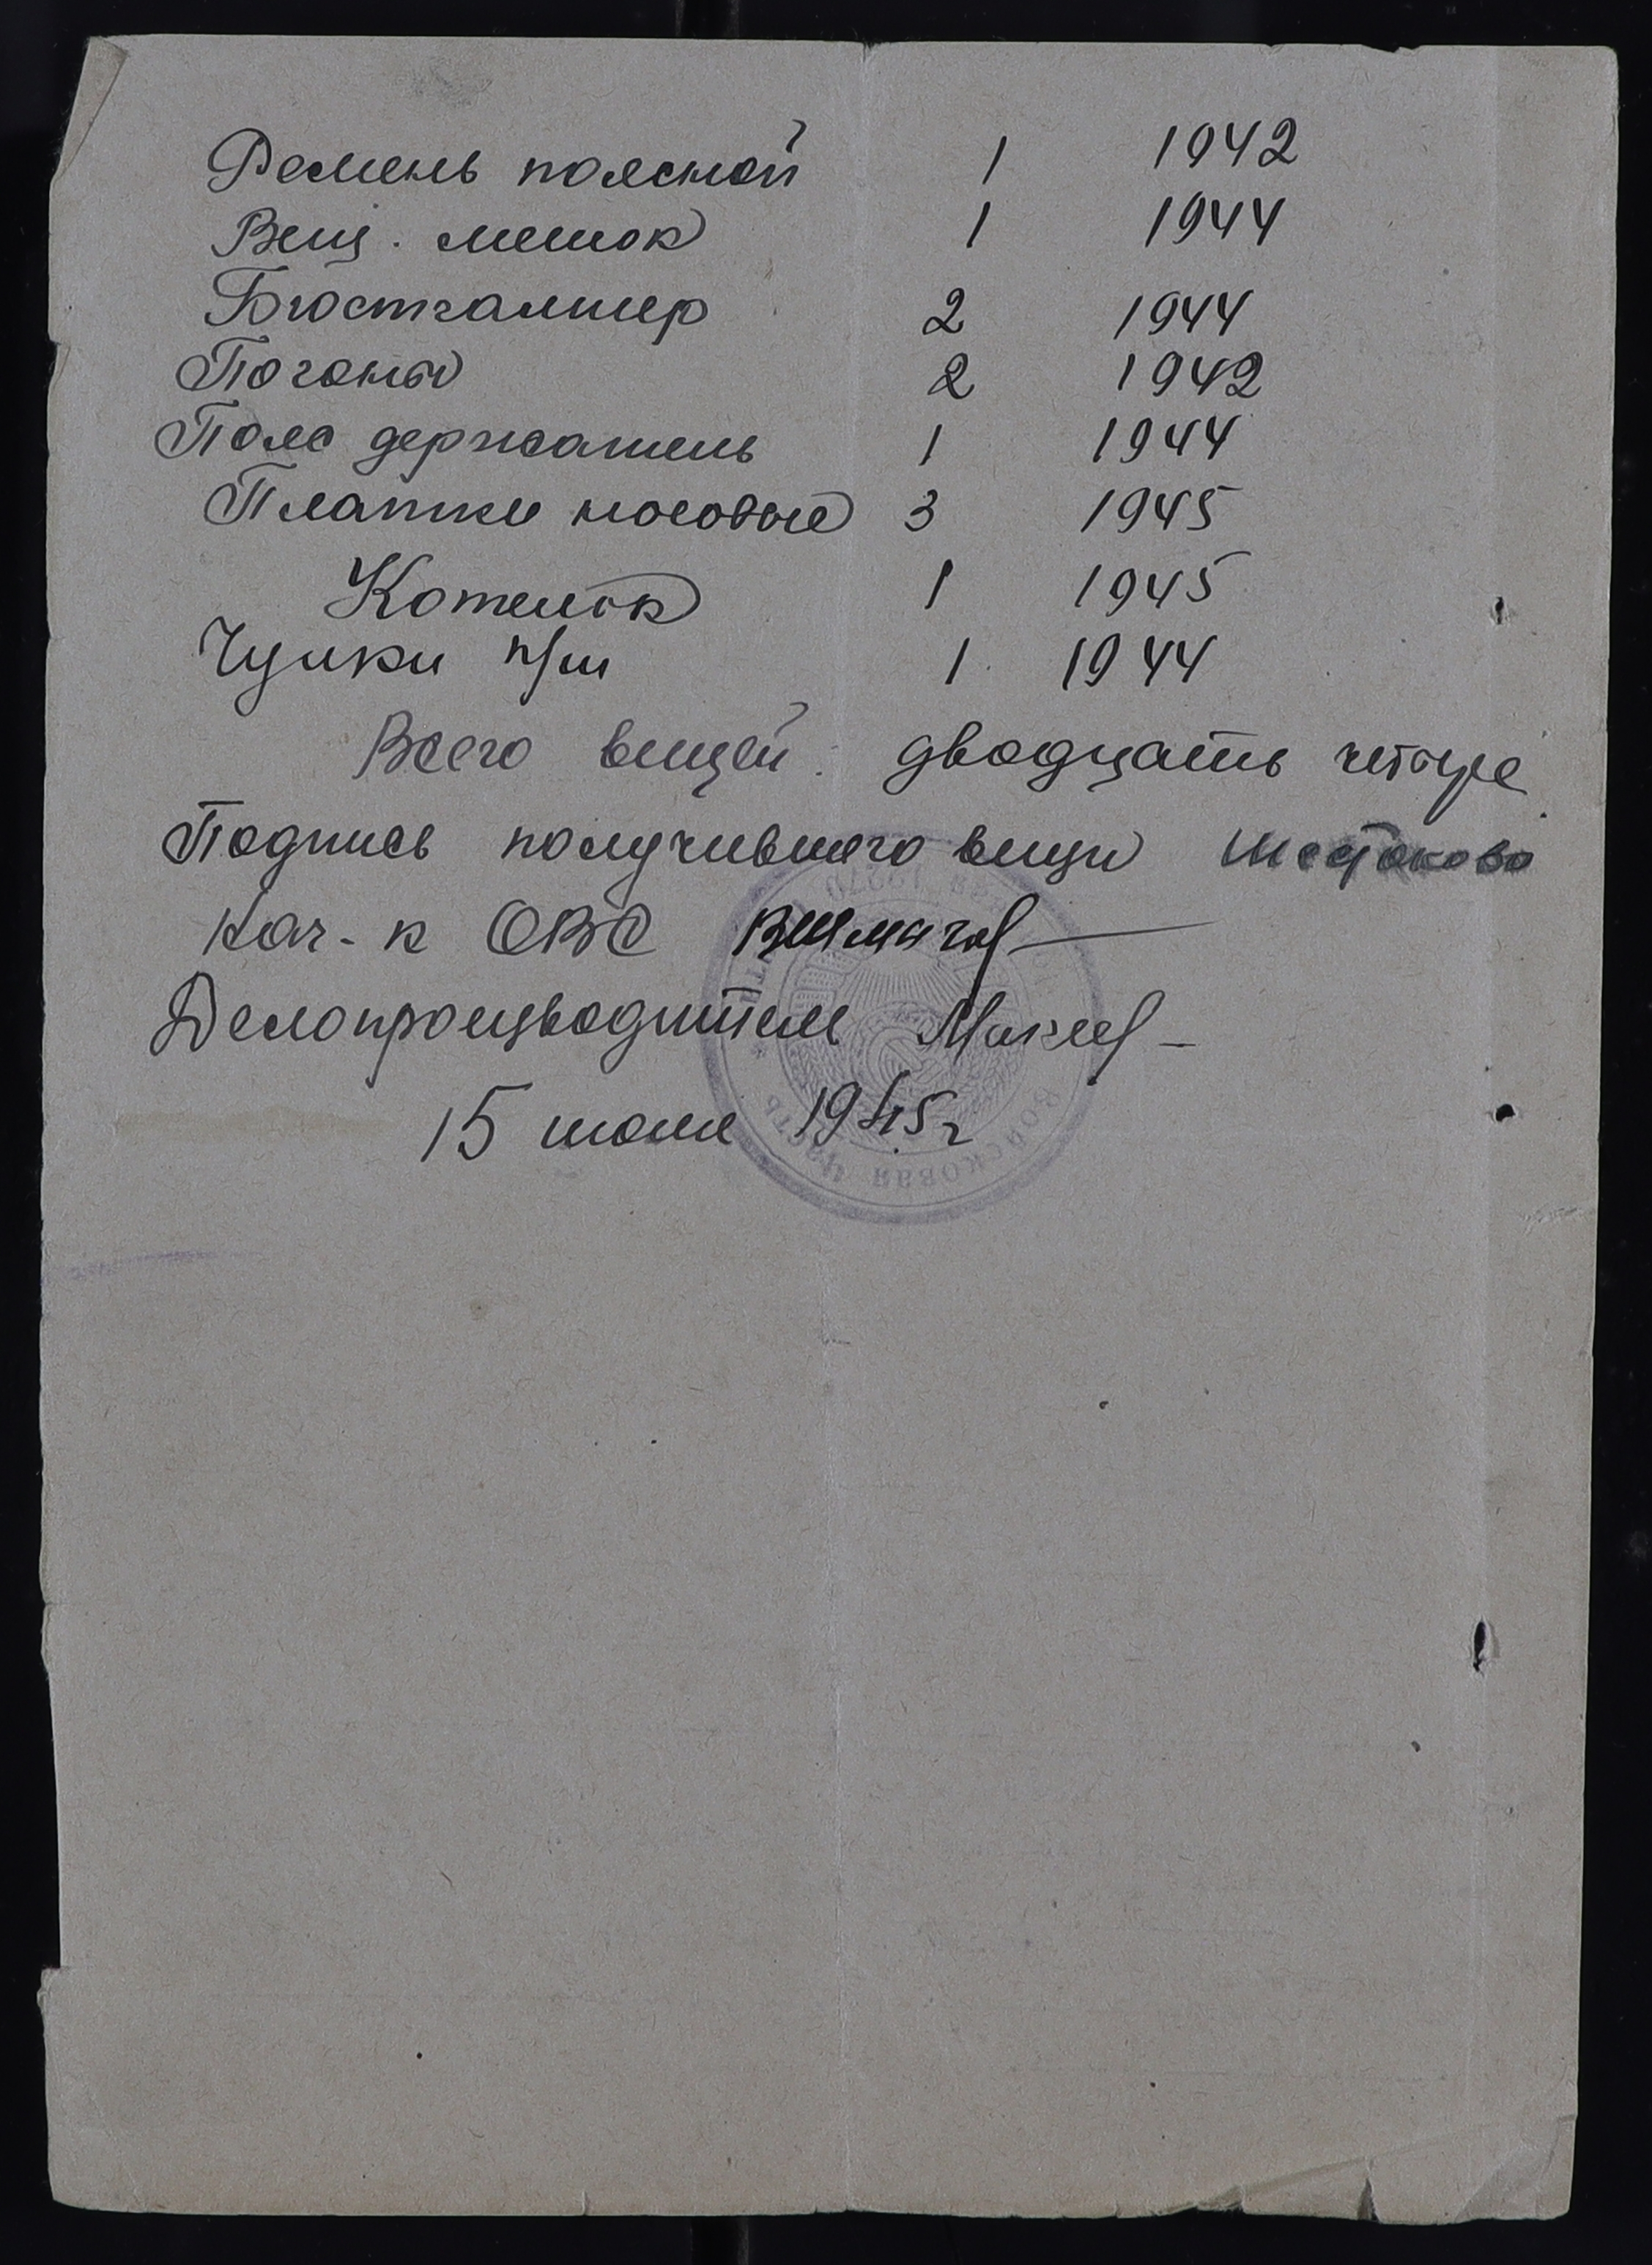 Ремень поясной 1 1942
Вещ. мешок 1 1944
Бюстгалтер 2 1944
Погоны 2 1942
Пояс держатель 1 1944
Платки носовые 3 1945
Котелок 1 1945
Чулки п/ш 1 1944
Всего вещей: двадцать четыре
Подпись получившего вещи Шестакова
Нач-к ОВС
Делопроизводитель Макеев
15 июля 1945г
ВОЙСКОВАЯ ЧАСТЬ